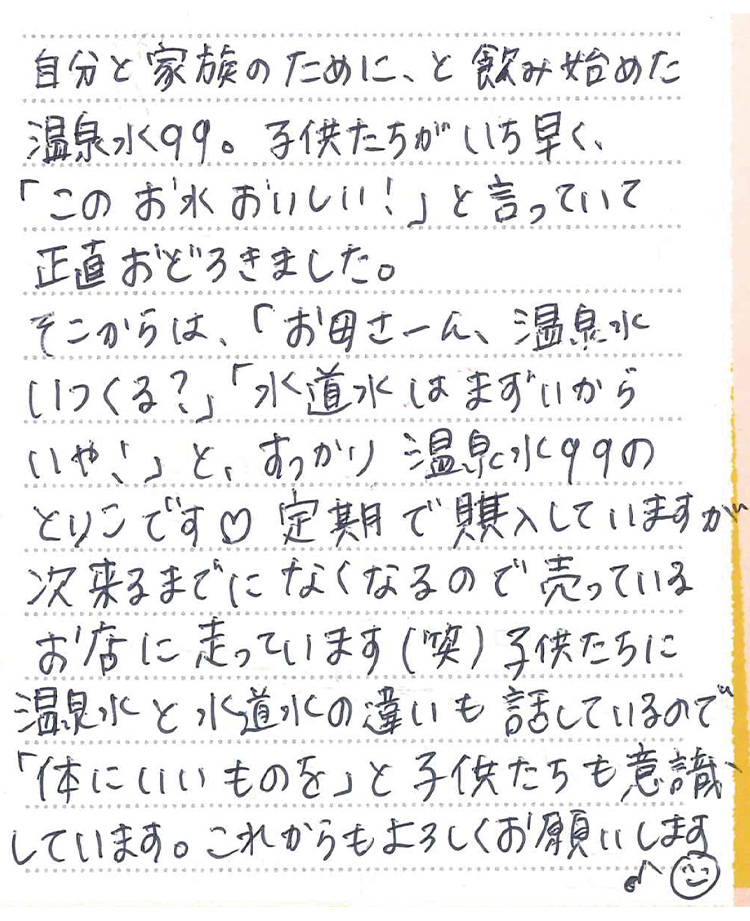 自分と家族のために、と飲み始めた
温泉水99。子供たちがいち早く、
「このお水おいしい!」と言っていて
正直おどろきました。
そこからは、「お母さーん、温泉水
いつくる?」「水道水はまずいから
いや!」と、すっかり温泉水99の
とりこです♡定期で購入していますが
次来るまでになくなるので売っている
お店に走っています(笑)子供たちに
温泉水と水道水の違いも話しているので
「体にいいものを」と子供たちも意識
しています。これからもよろしくお願いします
♪☺